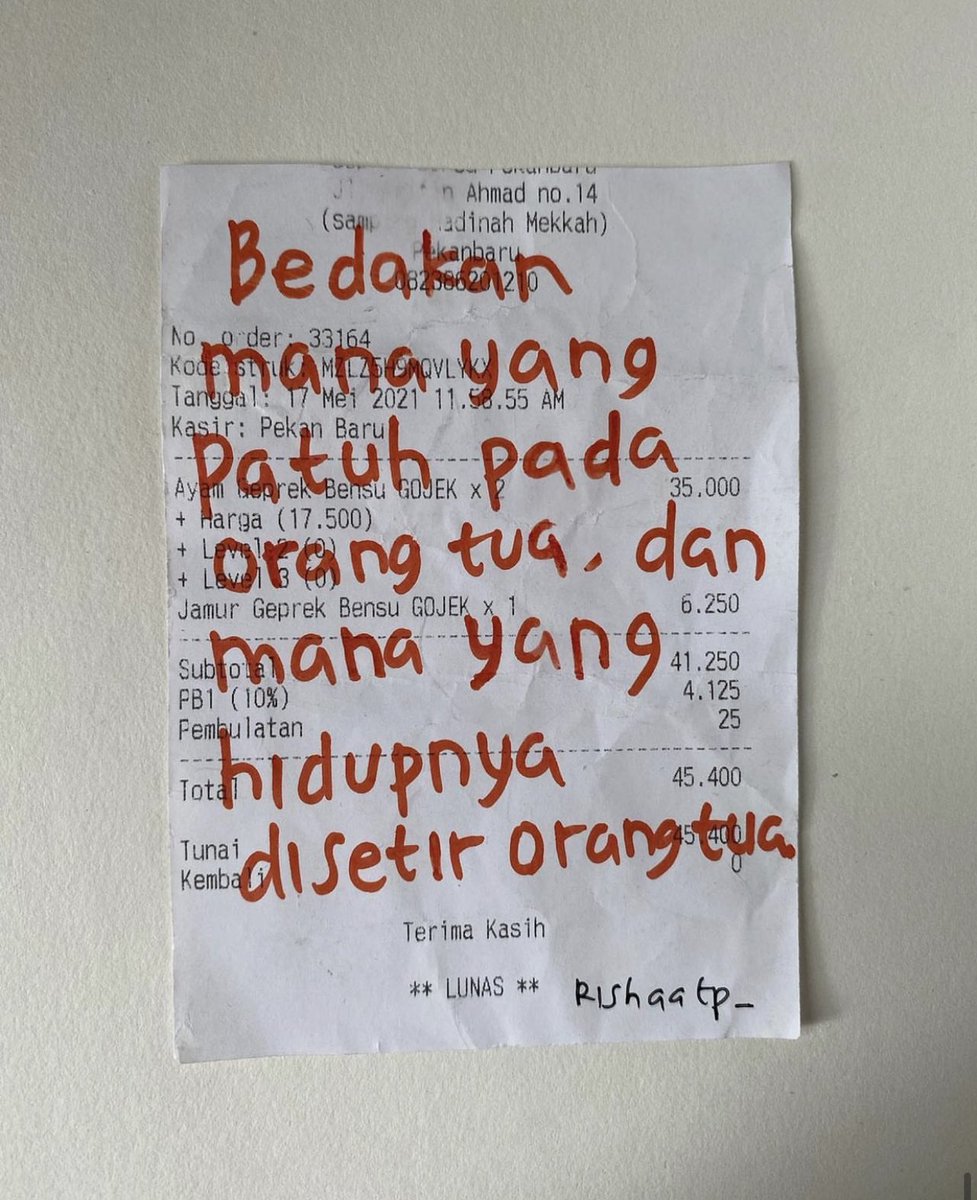 Ahmad no.14
(samp adinah Mekkah)
Pekanbaru
082386201210
Bedakan
mana yang
patuh pada
orang tua, dan
mana yang
hidupnya
disetir orang tua.
No. order: 33164
Kode struk: MZLZ5H9MQVLYKX
Tanggal: 17 Mei 2021 11.58.55 AM
Kasir: Pekan Baru
Ayam Geprek Bensu GOJEK x 2 35.000
+ Harga (17.500)
+ Level 2 (0)
+ Level 3 (0)
Jamur Geprek Bensu GOJEK x 1 6.250
Subtotal 41.250
PB1 (10%) 4.125
Pembulatan 25
Total 45.400
Tunai 45.400
Kembali 0
Terima Kasih
** LUNAS **
Rishaatp_